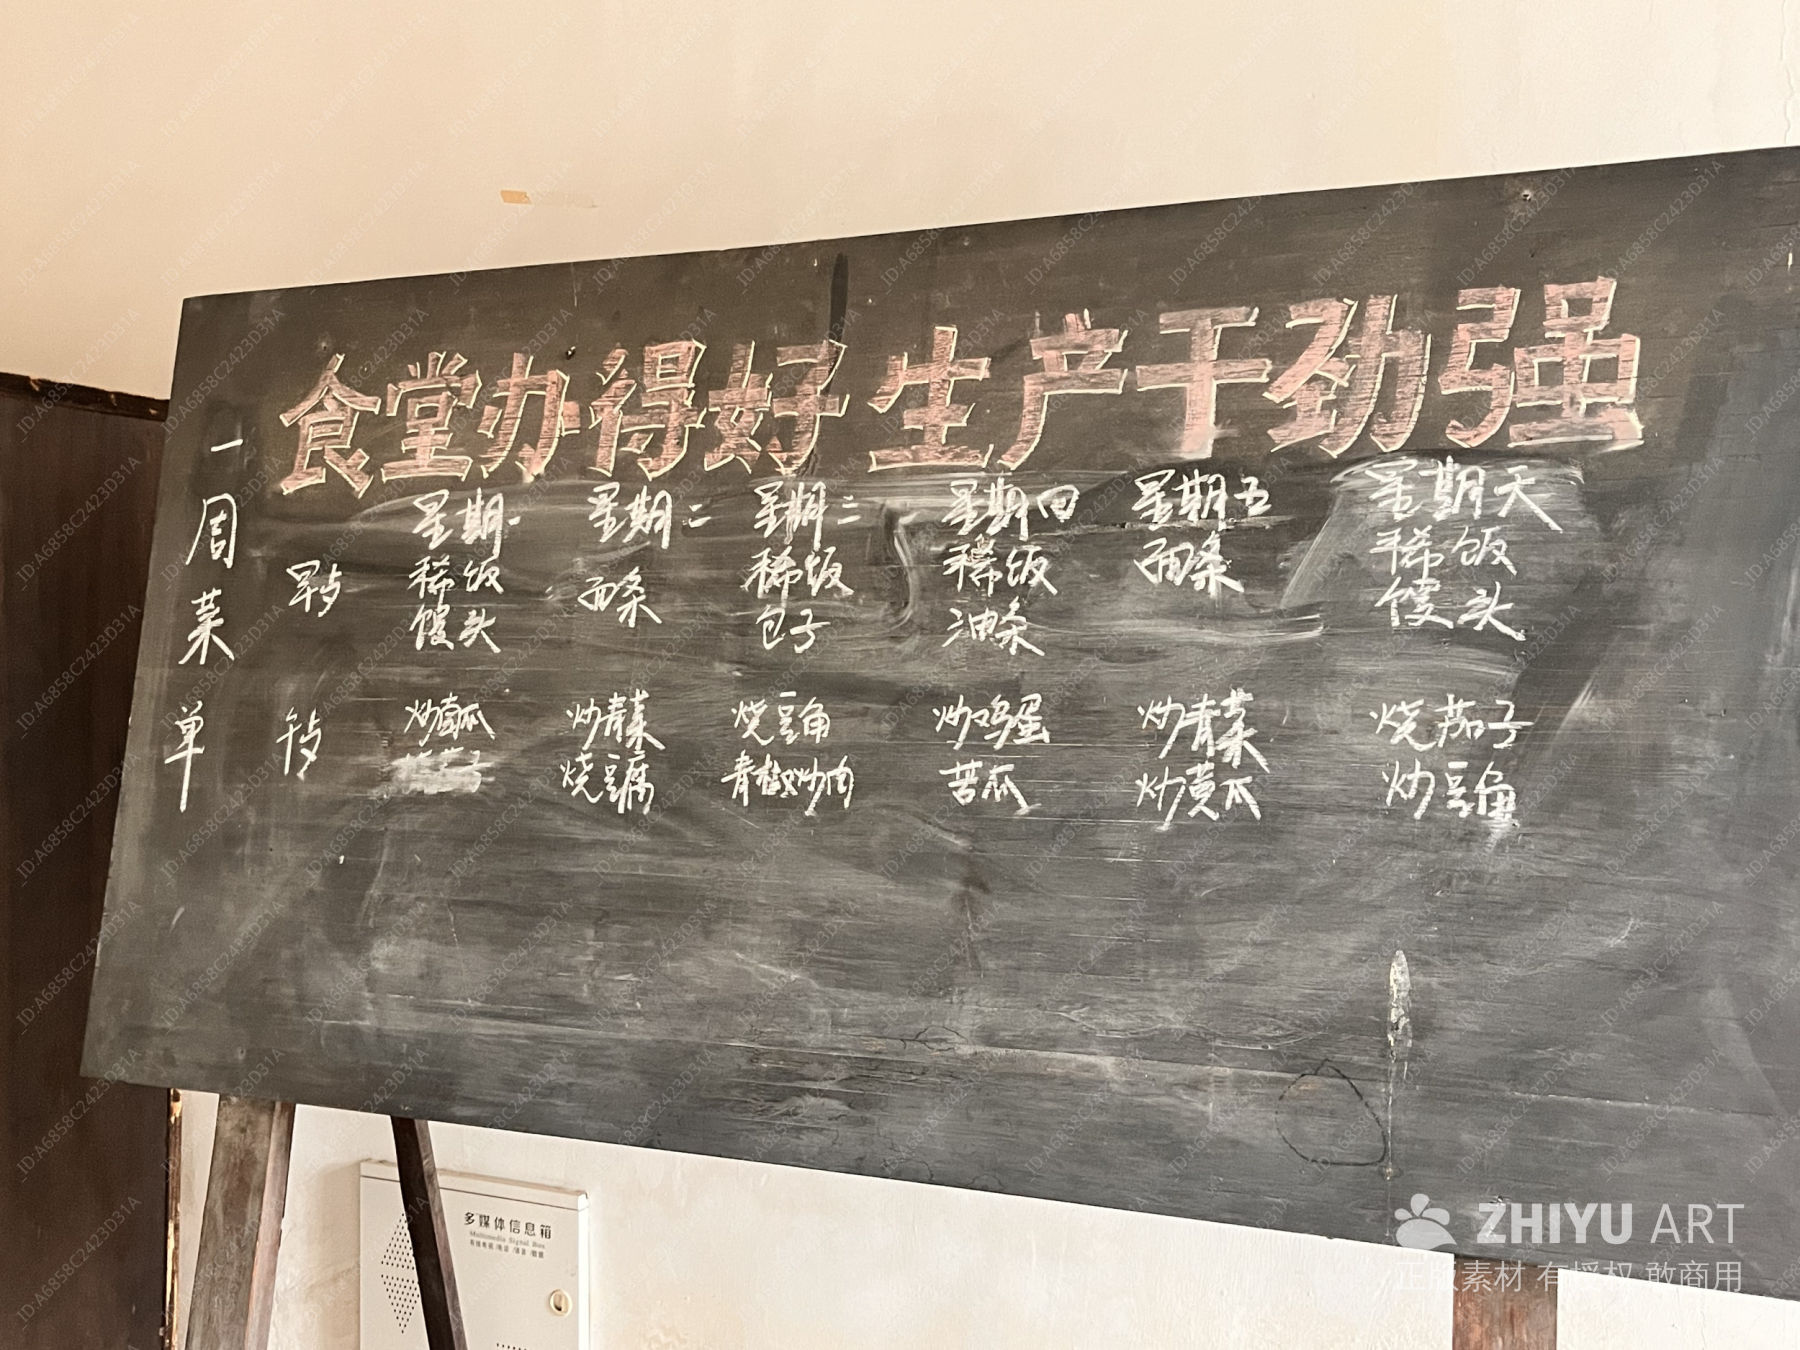 食堂办得好 生产干劲强
一周菜单
星期一 星期二 星期三 星期四 星期五 星期天
早点
稀饭 面条 稀饭 稀饭 面条 稀饭
馒头 包子 油条 馒头
午点
炒南瓜 炒青菜 烧豆角 炒鸡蛋 炒青菜 烧茄子
烧豆腐 青椒炒肉 苦瓜 炒黄瓜 炒豆角
多媒体信息箱
Multimedia Signal Box
ZHIYU ART
正版素材 有授权 敢商用
ID:A6858C2423D31A